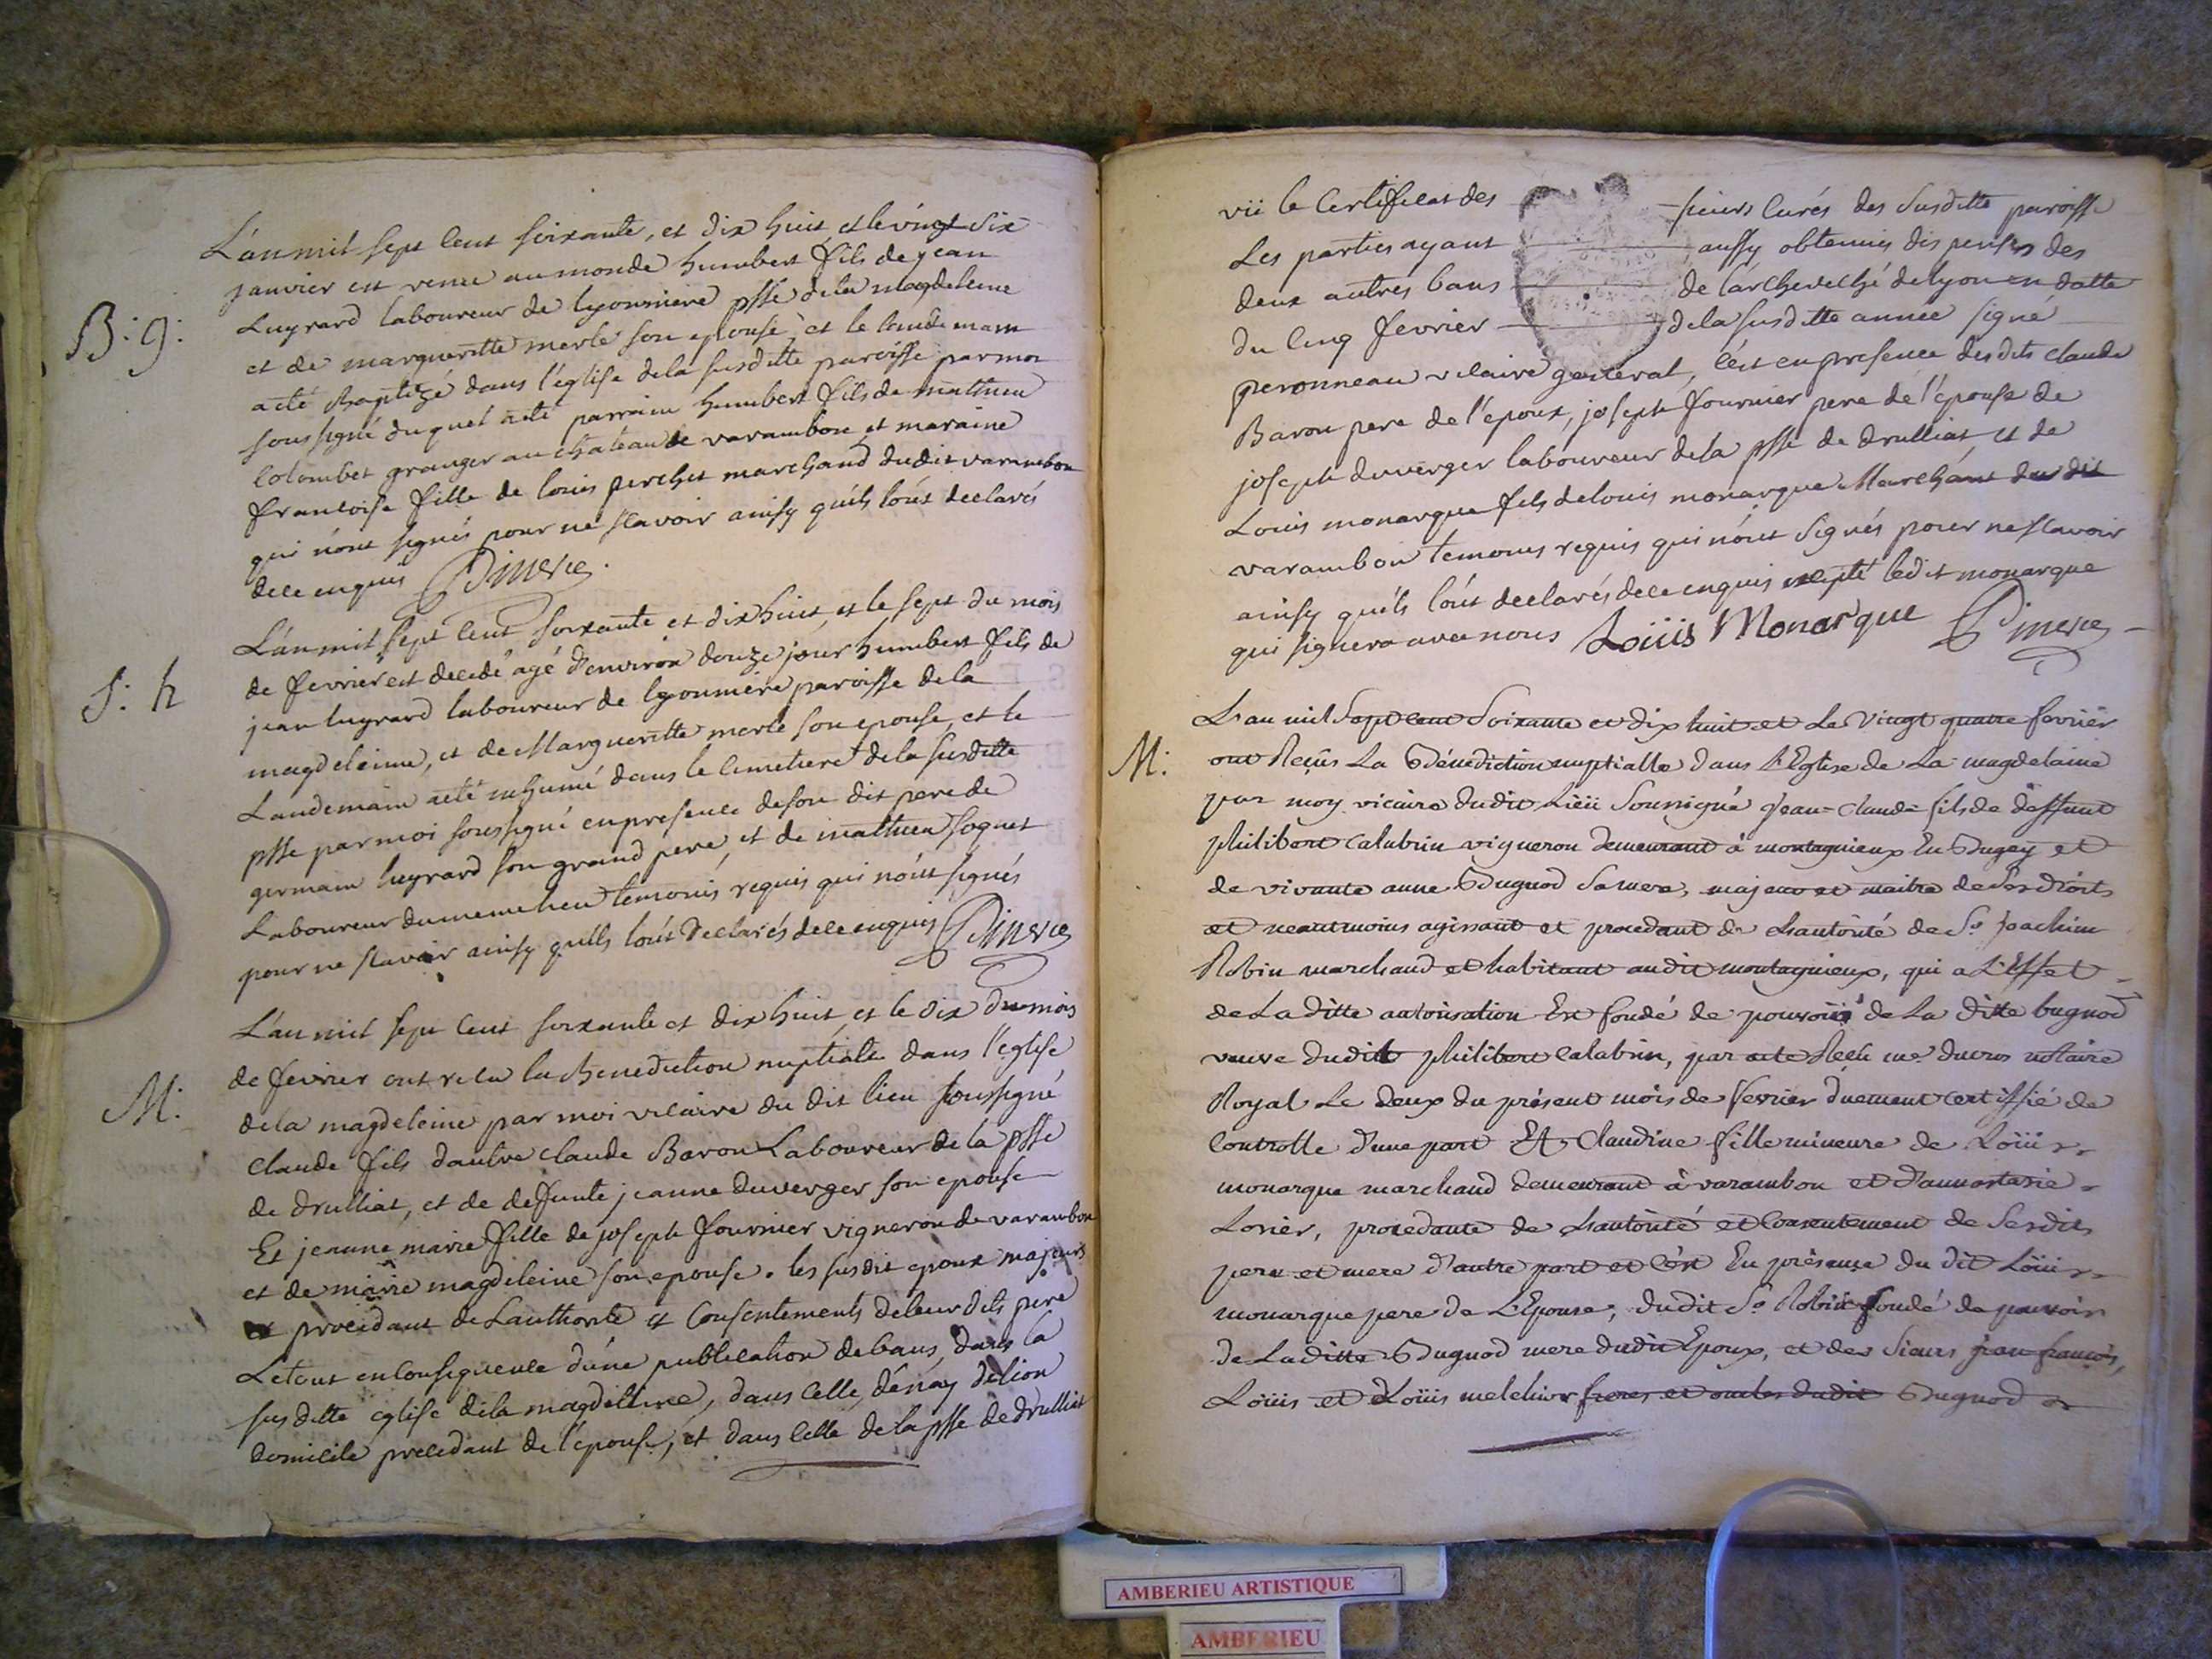 L'an mil sept cent soixante, et dix huit et le vingt six
janvier est venu au monde humbert fils de jean
Luyrard laboureur de lyonniere psse de la magdeleine
B: g:
et de margueritte merle son epouse, et le landemain
a eté Baptizé dans l'eglise de la susditte paroisse par moi
soussigné duquel a eté parrain humbert fils de mathieu
Colombet granger au chateau de varambon et maraine
francoise fille de louis perchet marchand dudit varambon
qui n'ont signés pour ne scavoir ainsy qu'ils l'ont declarés
de ce enquis
L'an mil sept cent soixante et dix huit, et le sept du mois
de fevrier est decedé agé d'environ douze jour humbert fils de
S: h
jean luyrard laboureur de lyonniere paroisse de la
magdeleine, et de Margueritte merle son epouse, et le
Landemain a eté inhumé dans le cimetiere de la susditte
psse par moi soussigné en presence de son dit pere de
germain luyrard son grand pere, et de mathieu soquet
Laboureur du meme lieu temoins requis qui n'ont signés
pour ne scavoir ainsy qu'ils l'ont declarés de ce enquis
L'an mil sept cent soixante et dix huit, et le dix du mois
de fevrier ont recu la Benediction nuptiale dans l'eglise
M:
de la magdeleine par moi vicaire du dit lieu soussigné
Claude fils d'autre claude Baron Laboureur de la psse
de druilliat, et de defunte jeanne duverger son epouse
Et jeanne marie fille de joseph fournier vigneron de varambon
et de marie magdeleine son epouse. les susdit epoux majeurs
et procedant de Lauthorité et Consentements de leur dits pere
Le tout en Consequence d'une publication de bans, dans la
susditte eglise de la magdeleine, dans celle, d'enay de lion
domicile precedant de l'epouse, et dans celle de la psse de druilliat
vii le Certificat des sieurs Curés des Susditte paroisse
Les parties ayant aussy obtenuis dispenses des
deux autres bans de l'archeveché de lyon en datte
du cinq fevrier de la susditte année signé
peronneau vicaire general, c'est en presence desdits claude
Baron pere de l'epoux, joseph fournier pere de l'epouse de
joseph duverger laboureur de la psse de druilliat et de
Louis monarque fils de louis monarque Marchand dudit
varambon temoins requis qui n'ont signés pour ne scavoir
ainsy qu'ils l'ont declarés de ce enquis excepté ledit monarque
qui signera avec nous Loüis Monarque
L'an mil Sept cent Soixante et dix huit et Le Vingt quatre fevrier
M:
ont Reçûs La Bénédiction nuptialle dans L'Eglise de La magdelaine
par moy vicaire dudit Lieü Sousigné Jean-Claude fils de deffunt
philibert Calabrin vigneron demeurant à montagnieux En Bugey et
de vivante anne Bugnod Sa mere, majeur et maitre de Ses droits
et neantmoins agissant et procedant de Lautorité de Sr Joachim
Robin marchand et habitant audit montagnieux, qui a L'Effet
de La ditte autorisation Est fondé de pouvoir de La ditte bugnod
veuve dudit philibert Calabrin, par acte Reçu me ducros notaire
Royal Le deux du présent mois de fevrier duement Certiffié de
Controlle d'une part Et Claudine fille mineure de Loüis
monarque marchand demeurant à varambon et d'annastasie
Lorier, procedante de Lautorité et Consentement de Sesdits
pere et mere d'autre part et C'est En présence du dit Loüis
monarque pere de L'Epouse, dudit Sr Robin fondé de pouvoir
de Laditte Bugnod mere dudit Epoux, et des Sieurs jean françois,
Loüis et Loüis melchior freres et oncles dudit Bugnod
AMBERIEU ARTISTIQUE
AMBERIEU